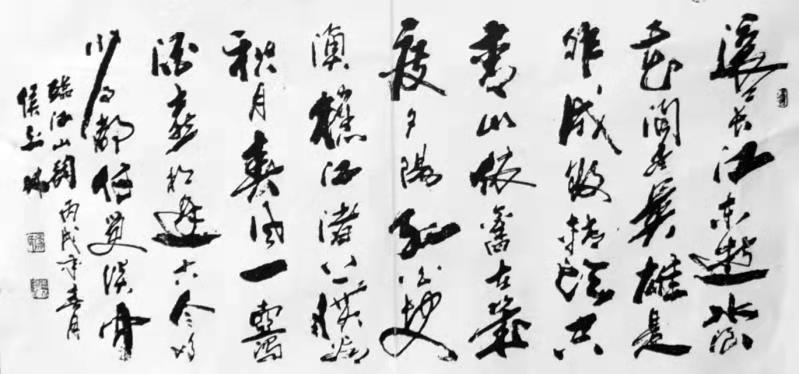 滚々长江东逝水浪
花淘尽英雄是
非成败转头空
青山依舊在几
度夕阳红白发
渔樵江渚上惯看
秋月春风一壶浊
酒喜相逢古今多
少事都付笑谈中
临江仙词 丙戌年春月
侯